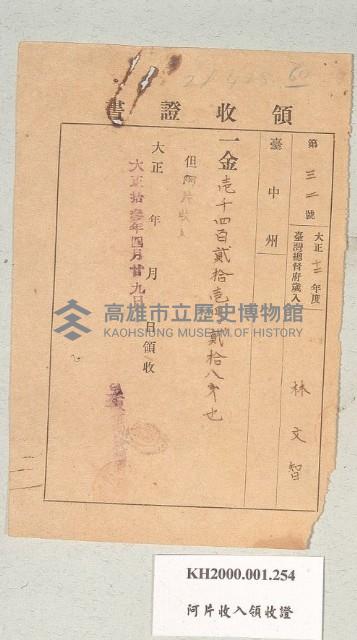 領收證書
第三二號
大正十三年度
臺灣總督府歲入
林文智
臺中州
一金壱千四百貳拾壱円貳拾八才也
但阿片收入
大正 年 月 日領收
大正拾參年四月廿九日
高雄市立歷史博物館
KAOHSIUNG MUSEUM OF HISTORY
KH2000.001.254
阿片收入領收證